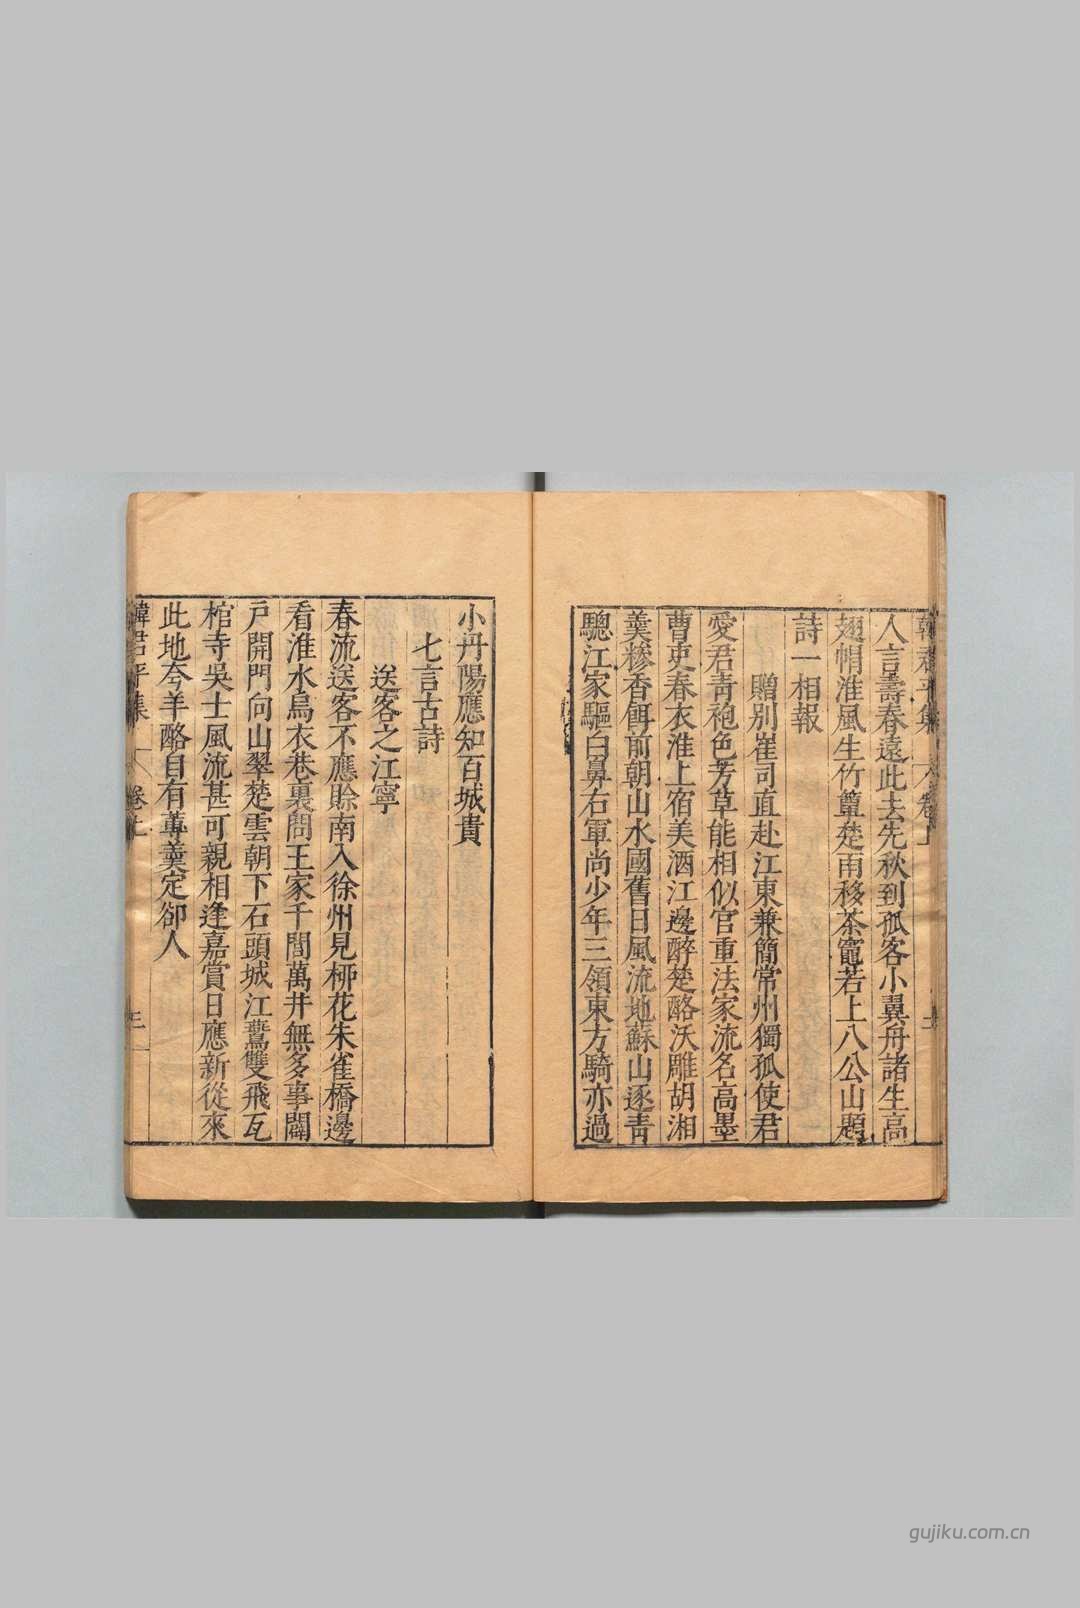 韓君平集 卷上 二
人言壽春遠此去先秋到孤客小翼舟諸生高
翅帽淮風生竹簟楚雨移茶竈若上八公山題
詩一相報
贈別崔司直赴江東兼簡常州獨孤使君
愛君青袍色芳草能相似官重法家流名高墨
曹吏春衣淮上宿美酒江邊醉楚酪沃雕胡湘
羹糝香餌前朝山水國舊日風流地蘇山逐青
驄江家驅白鼻右軍尚少年三領東方騎亦過
小丹陽應知百城貴
七言古詩
送客之江寧
春流送客不應賒南入徐州見柳花朱雀橋邊
看淮水烏衣巷裏問王家千閭萬井無多事闢
戶開門向山翠楚雲朝下石頭城江鷰雙飛瓦
棺寺吳士風流甚可親相逢嘉賞日應新從來
此地夸羊酪自有蓴羹定卻人
韓君平集 卷上 三
gujiku.com.cn